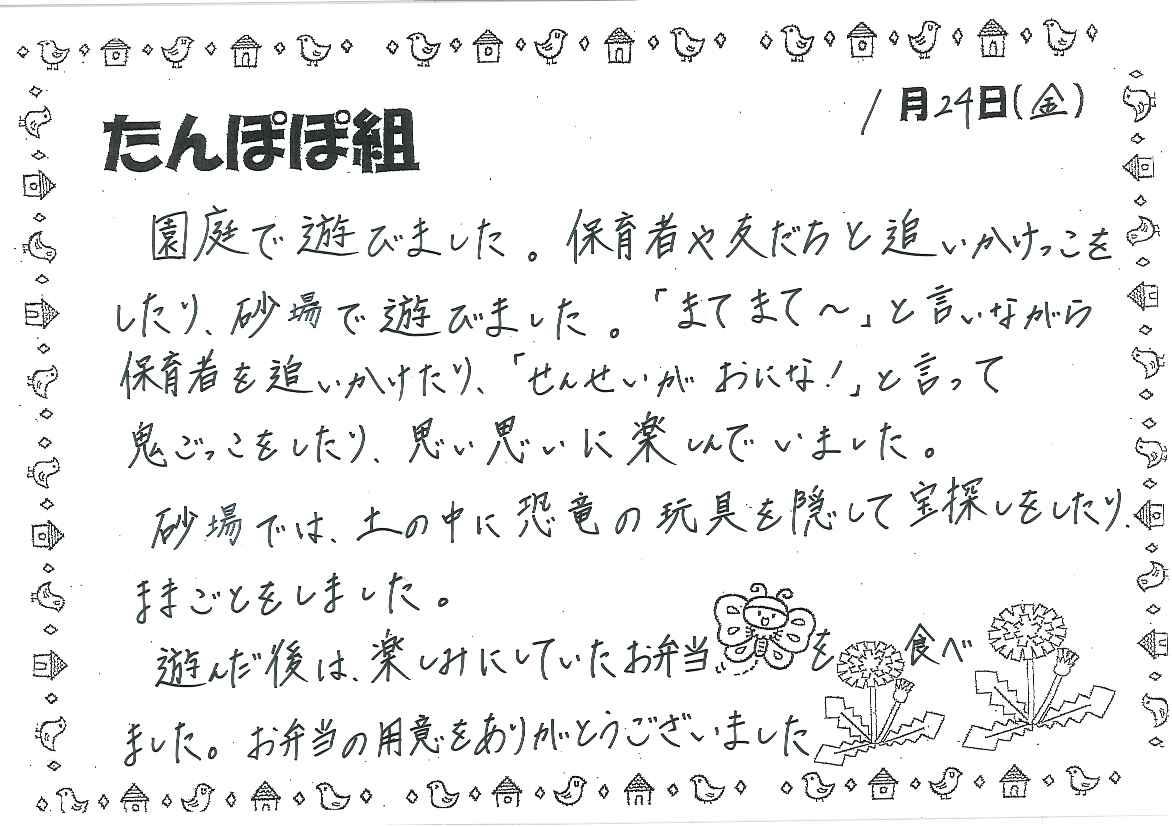 1月24日(金)
たんぽぽ組
園庭で遊びました。保育者や友だちと追いかけっこを
したり、砂場で遊びました。「まてまて〜」と言いながら
保育者を追いかけたり、「せんせいが おにな!」と言って
鬼ごっこをしたり、思い思いに楽しんでいました。
砂場では、土の中に恐竜の玩具を隠して宝探しをしたり、
ままごとをしました。
遊んだ後は、楽しみにしていたお弁当を食べ
ました。お弁当の用意をありがとうございました